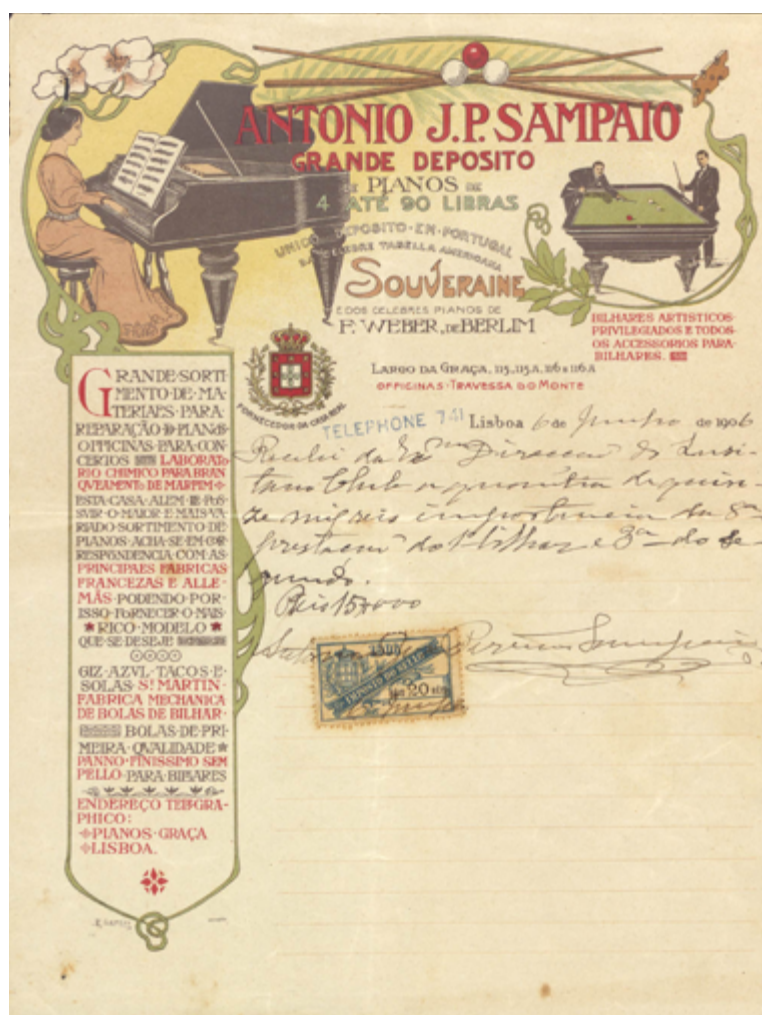 ANTONIO J.P. SAMPAIO
GRANDE DEPOSITO
DE PIANOS DE
4 ATÉ 90 LIBRAS
UNICO DEPOSITO·EM·PORTUGAL
DA CELEBRE TABELLA AMERICANA
SOUVERAINE
E DOS CELEBRES PIANOS DE
F. WEBER, DE BERLIM
BILHARES ARTISTICOS·
PRIVILEGIADOS E TODOS·
OS ACCESSORIOS PARA·
BILHARES.
LARGO DA GRAÇA, 115, 115.A, 116 E 116 A
OFFICINAS·TRAVESSA DO MONTE
FORNECEDOR DA CASA REAL
TELEPHONE 741
Lisboa 6 de Junho de 1906
Recebi da Exma Direcção do Lusi-
tano Club a quantia de quin-
ze mil reis importancia da 8ª
prestação do 1º bilhar e 3ª do se-
gundo.
Reis 15$000
Pereira Sampaio
IMPOSTO DO SELLO
20
GRANDE·SORTI
MENTO·DE·MA-
TERIAES·PARA·
REPARAÇÃO·D·PIANOS·
OFFICINAS·PARA·CON-
CERTOS LABORATO-
RIO CHIMICO PARA BRAN
QVEAMENTO DE MARFIM
ESTA·CASA·ALEM·DE·POS-
SVIR·O·MAIOR·E·MAIS·VA-
RIADO·SORTIMENTO·DE·
PIANOS·ACHA·SE·EM·COR-
RESPONDENCIA·COM·AS·
PRINCIPAES FABRICAS
FRANCEZAS E ALLE-
MÃS·PODENDO·POR-
ISSO·FORNECER·O·MAIS·
RICO·MODELO
QUE·SE·DESEJE
GIZ·AZVL·TACOS·E·
SOLAS·St MARTIN·
FABRICA MECHANICA
DE BOLAS DE BILHAR·
BOLAS·DE·PRI-
MEIRA·QVALIDADE
PANNO·FINISSIMO SEM
PELLO·PARA·BILHARES
ENDEREÇO TELEGRA-
PHICO:
PIANOS·GRAÇA
LISBOA.